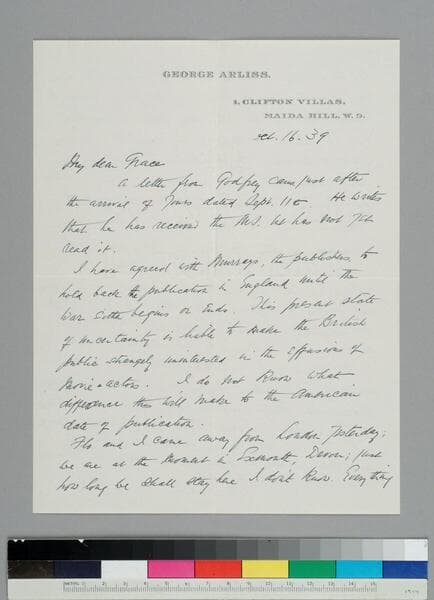 GEORGE ARLISS.
1, CLIFTON VILLAS,
MAIDA HILL, W. 9.
Oct. 16. 39
My dear Grace
A letter from Godfrey came just after
the arrival of yours dated Sept. 11th. He writes
that he has received the MS. but has not yet
read it.
I have agreed with Murrays, the publishers, to
hold back the publication in England until the
war either begins or ends. This present state
of uncertainty is liable to make the British
public strangely uninterested in the effusions of
movie-actors. I do not know what
difference this will make to the American
date of publication.
Flo and I came away from London yesterday;
we are at the moment in Exmouth, Devon; just
how long we shall stay here I don't know. Everything